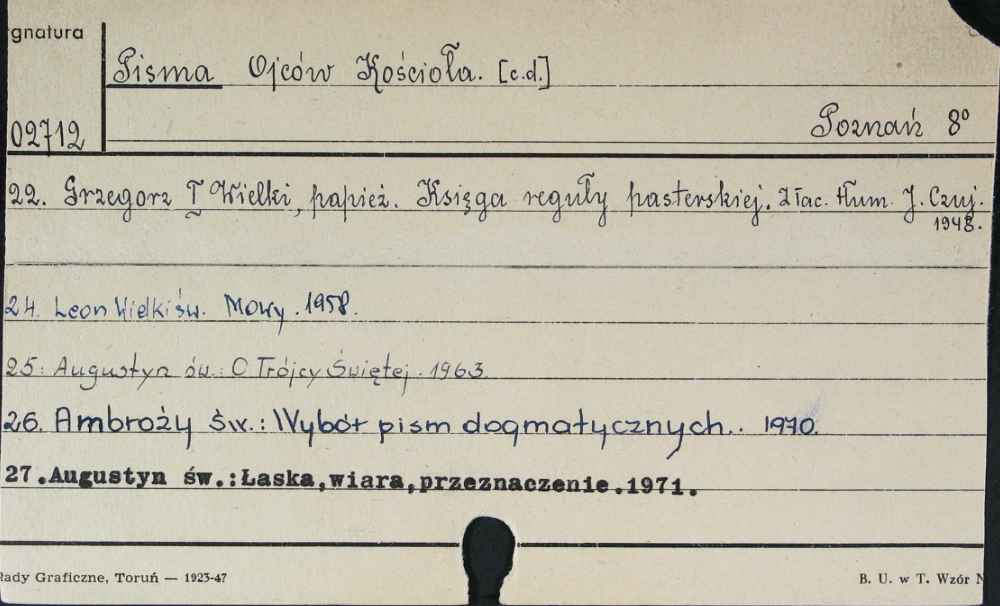 gnatura
Pisma Ojców Kościoła. [c.d.]
02712
Poznań 8º
22. Grzegorz I Wielki, papież. Księga reguły pasterskiej. Z łac. tłum. J. Czuj.
1948.
24. Leon Wielki św. Mowy. 1958.
25. Augustyn św.: O Trójcy Świętej. 1963.
26. Ambroży Św.: Wybór pism dogmatycznych. 1970.
27.Augustyn św.:Łaska,wiara,przeznaczenie.1971.
łady Graficzne, Toruń — 1923-47
B. U. w T. Wzór N